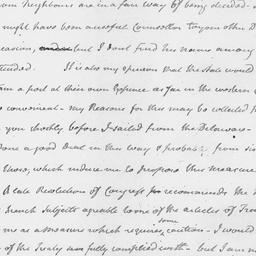 Neighbours are in a fair way of being decided.
might have been a useful Counsellor to your other D
casion, but I don't find his name among
tended. It is also my opinion that the State would
in a post at their own Expence as far in the western
convenient. my Reasons for this may be collected f
you shortly before I sailed from the Delaware.
one a good deal in this Way & probably from si
those, which induce me to propose this measure
A late Resolution of Congress recommends the
french Subjects agreable to one of the articles of Trea
me as a measure which requires some caution. I would
of the Treaty was fully complied with. but I am n